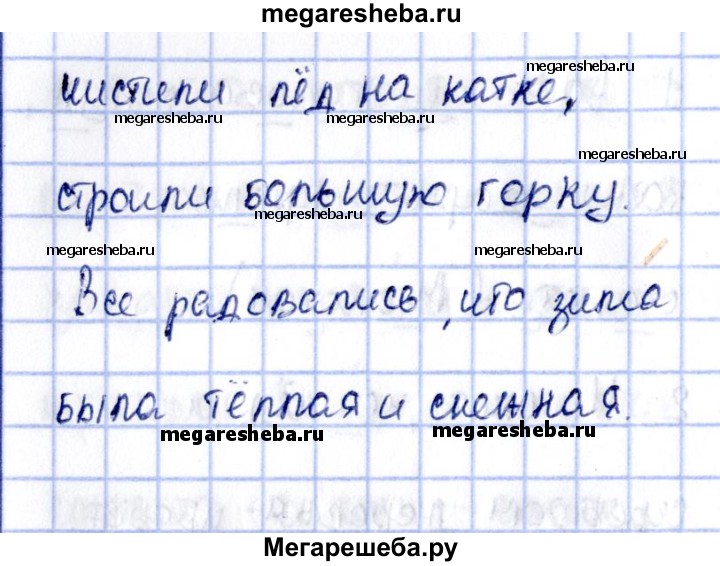 megaresheba.ru
megaresheba.ru
чистили лёд на катке,
megaresheba.ru megaresheba.ru
megaresheba.ru
строили большую горку.
megaresheba.ru
megaresheba.ru megaresheba.ru
Все радовались, что зима
была тёплая и снежная.
megaresheba.ru megaresheba.ru
Мегарешеба.ру